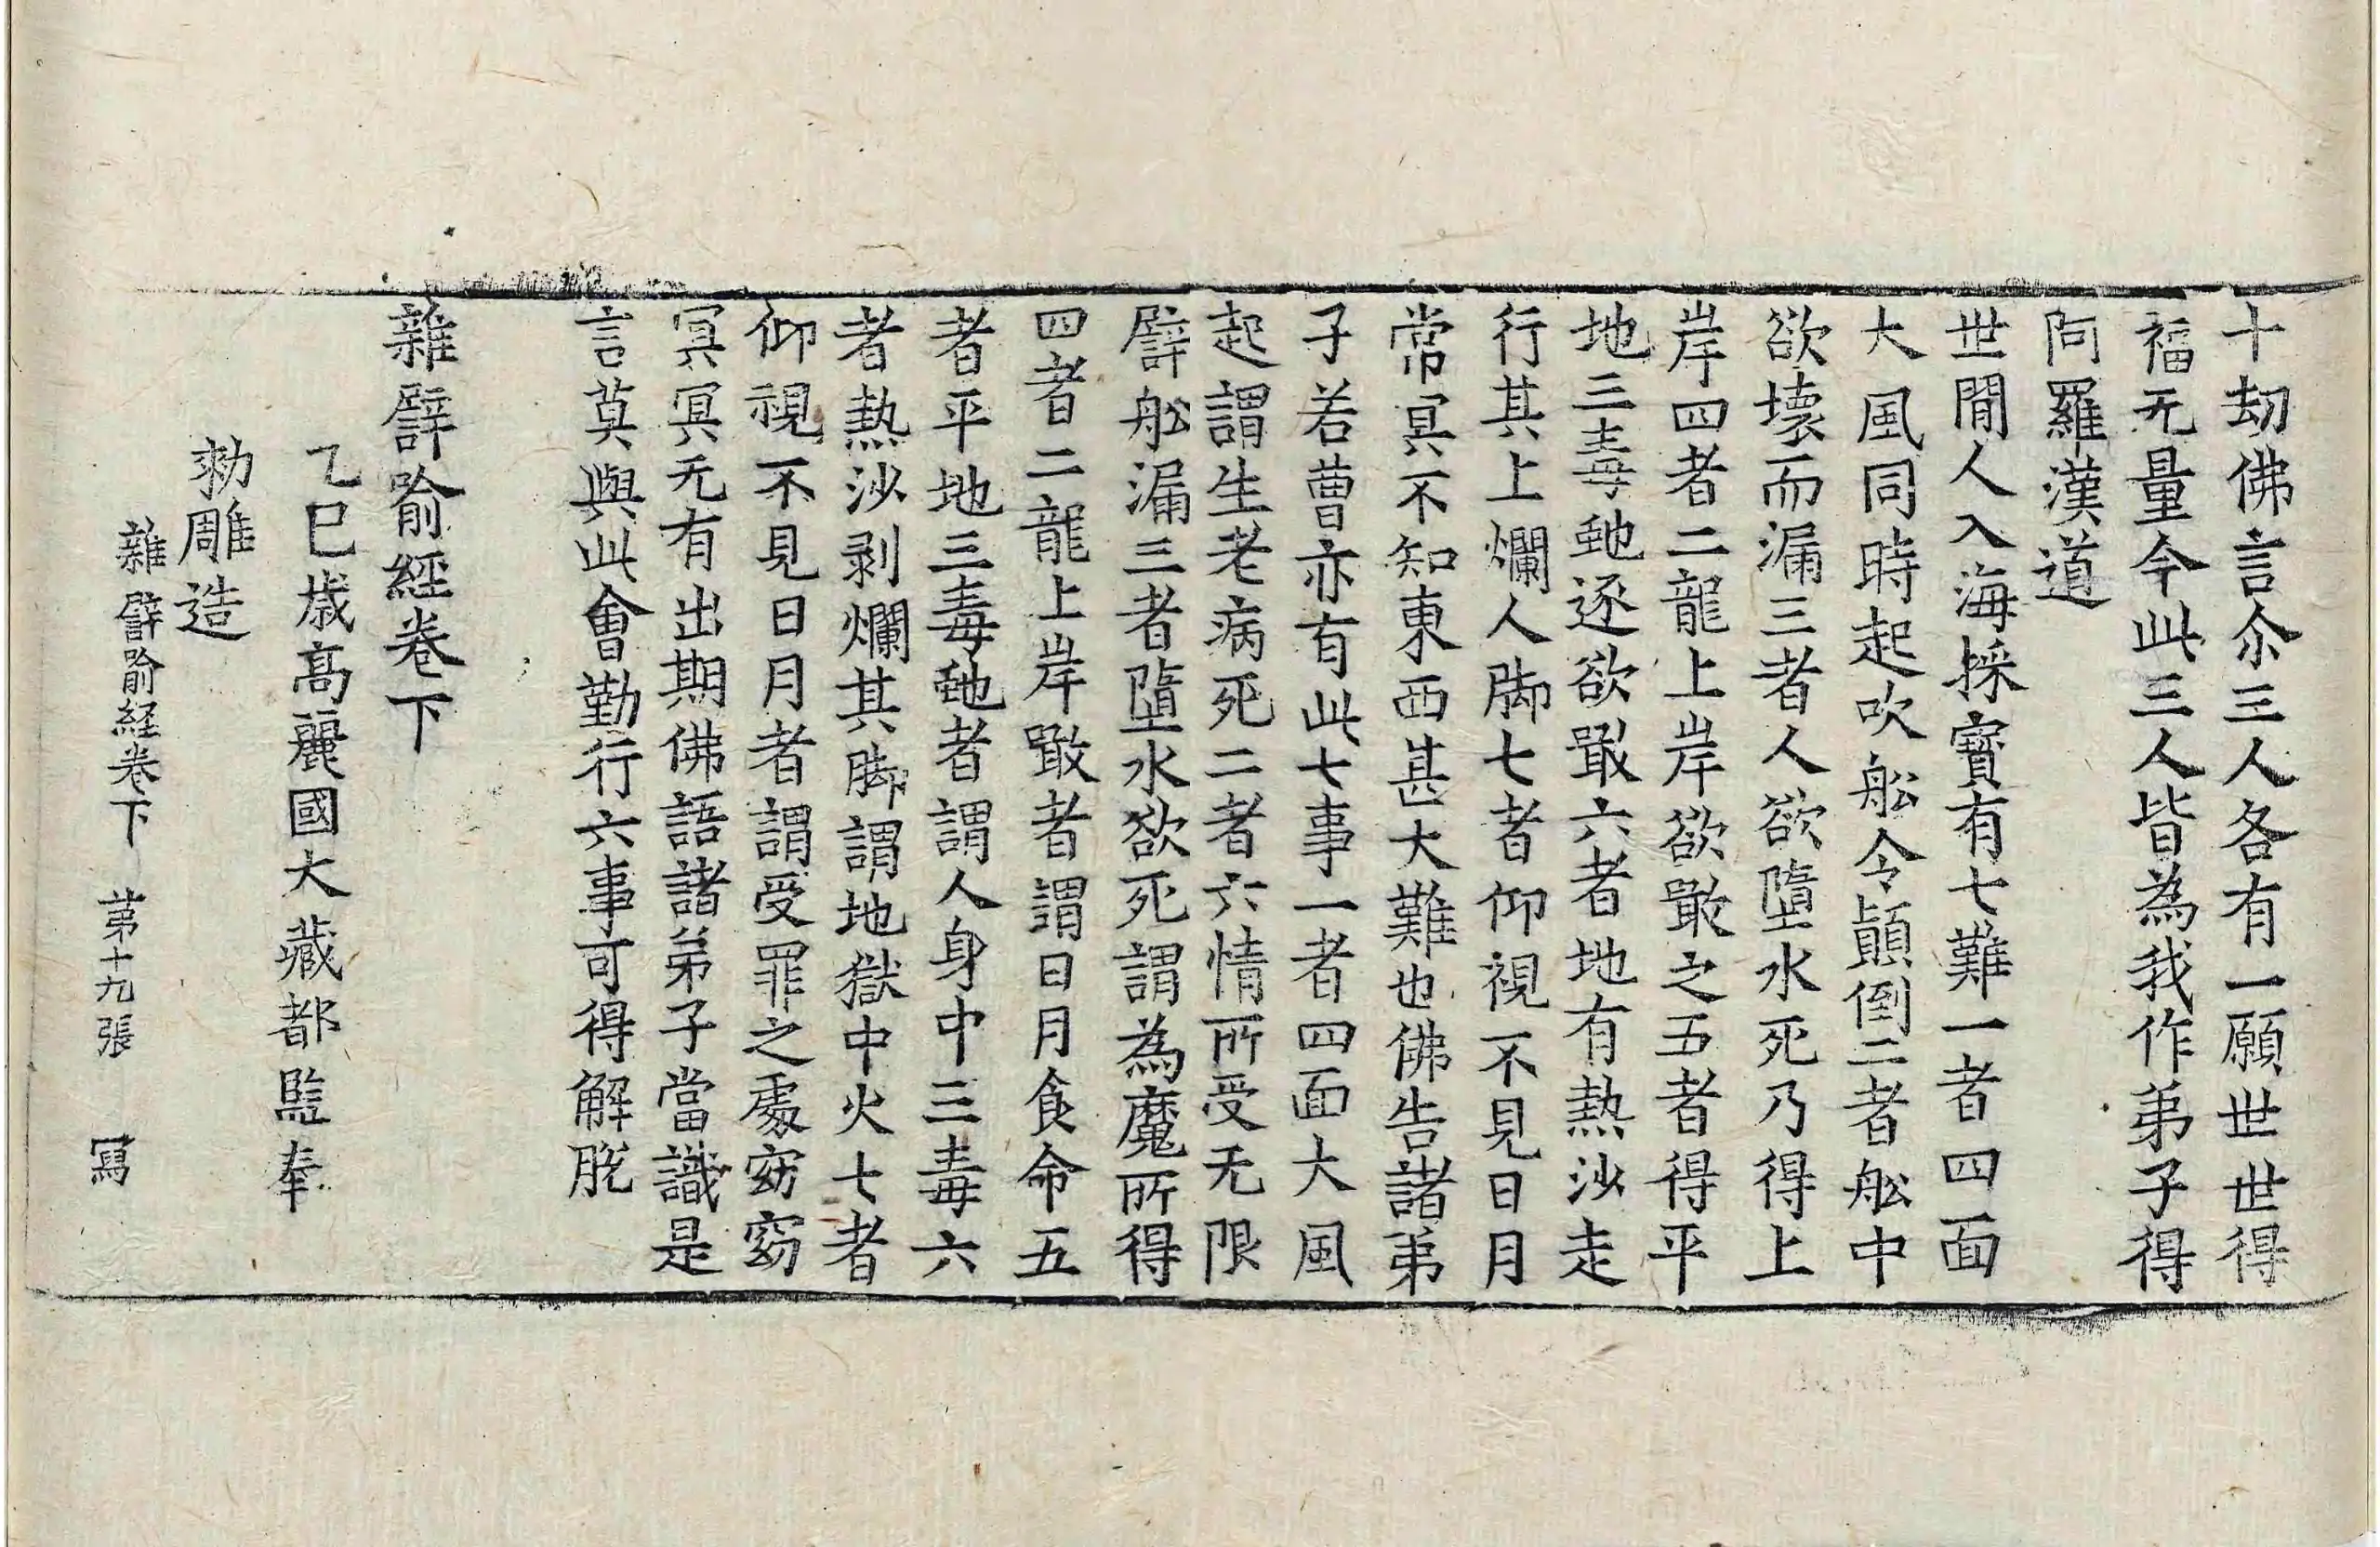 十劫佛言尒三人各有一願世世得
福无量今此三人皆為我作弟子得
阿羅漢道
世閒人入海採寶有七難一者四面
大風同時起吹舩令顚倒二者舩中
欲壞而漏三者人欲墮水死乃得上
岸四者二龍上岸欲噉之五者得平
地三毒虵逐欲噉六者地有熱沙走
行其上爛人脚七者仰視不見日月
常冥不知東西甚大難也佛告諸弟
子若曹亦有此七事一者四面大風
起謂生老病死二者六情所受无限
譬舩漏三者墮水欲死謂為魔所得
四者二龍上岸噉者謂日月食命五
者平地三毒虵者謂人身中三毒六
者熱沙剥爛其脚謂地獄中火七者
仰視不見日月者謂受罪之處窈窈
冥冥无有出期佛語諸弟子當識是
言莫與此會勤行六事可得解脫
雜譬喻經卷下
乙巳歳高麗國大藏都監奉
勑雕造
雜譬喻経卷下 第十九張 冩